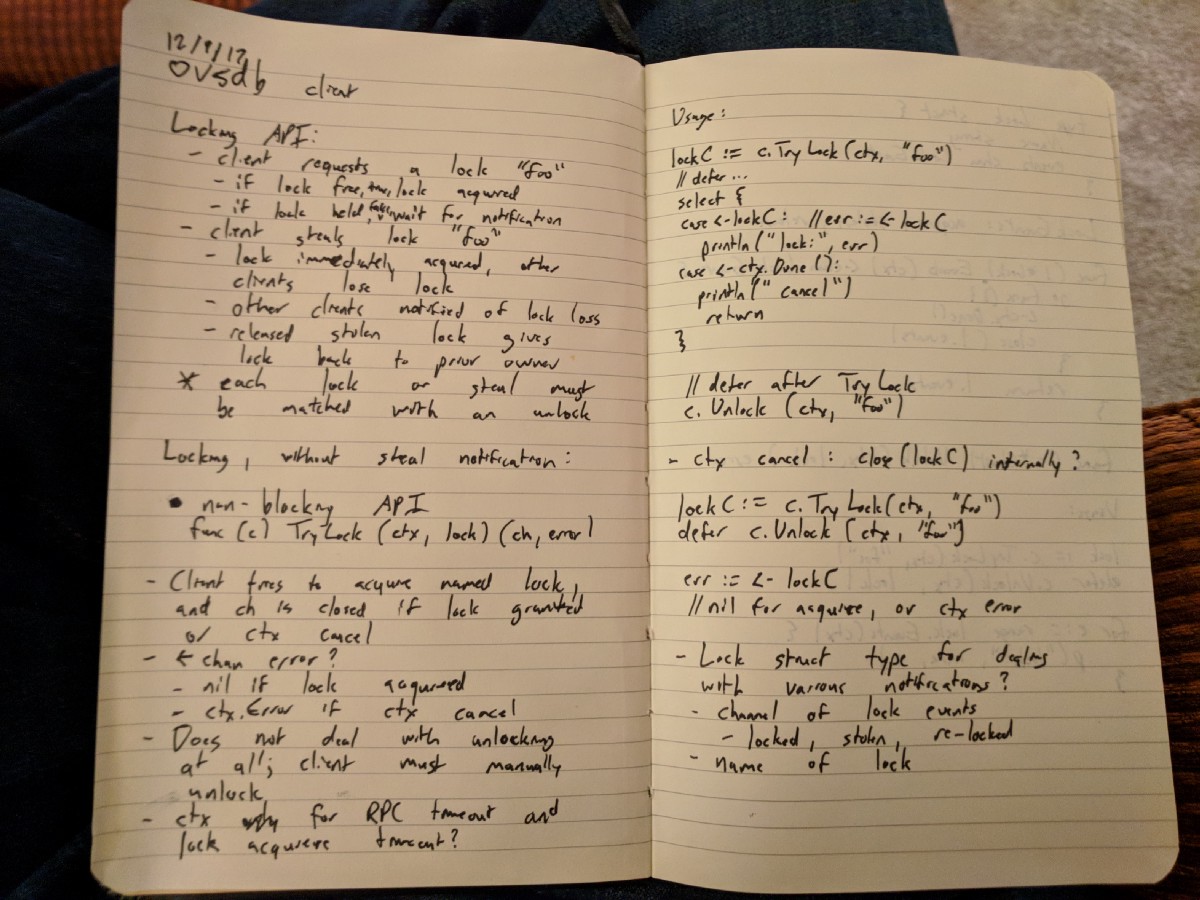 12/9/17
ovsdb client
Locking API:
- client requests a lock "foo"
- if lock free, true, lock acquired
- if lock held, false, wait for notification
- client steals lock "foo"
- lock immediately acquired, other
clients lose lock
- other clients notified of lock loss
- released stolen lock gives
lock back to prior owner
* each lock or steal must
be matched with an unlock
Locking, without steal notification:
• non-blocking API
func (c) TryLock (ctx, lock) (ch, error)
- Client tries to acquire named lock,
and ch is closed if lock granted
or ctx cancel
- ← chan error?
- nil if lock acquired
- ctx.Error if ctx cancel
- Does not deal with unlocking
at all; client must manually
unlock
- ctx for RPC timeout and
lock acquire timeout?
Usage:
lockC := c.TryLock(ctx, "foo")
// defer ...
select {
case <-lockC: // err := <-lockC
println("lock:", err)
case <-ctx.Done():
println("cancel")
return
}
// defer after TryLock
c.Unlock (ctx, "foo")
- ctx cancel: close(lockC) internally?
lockC := c.TryLock(ctx, "foo")
defer c.Unlock (ctx, "foo")
err := <- lockC
// nil for acquire, or ctx error
- Lock struct type for dealing
with various notifications?
- channel of lock events
- locked, stolen, re-locked
- name of lock